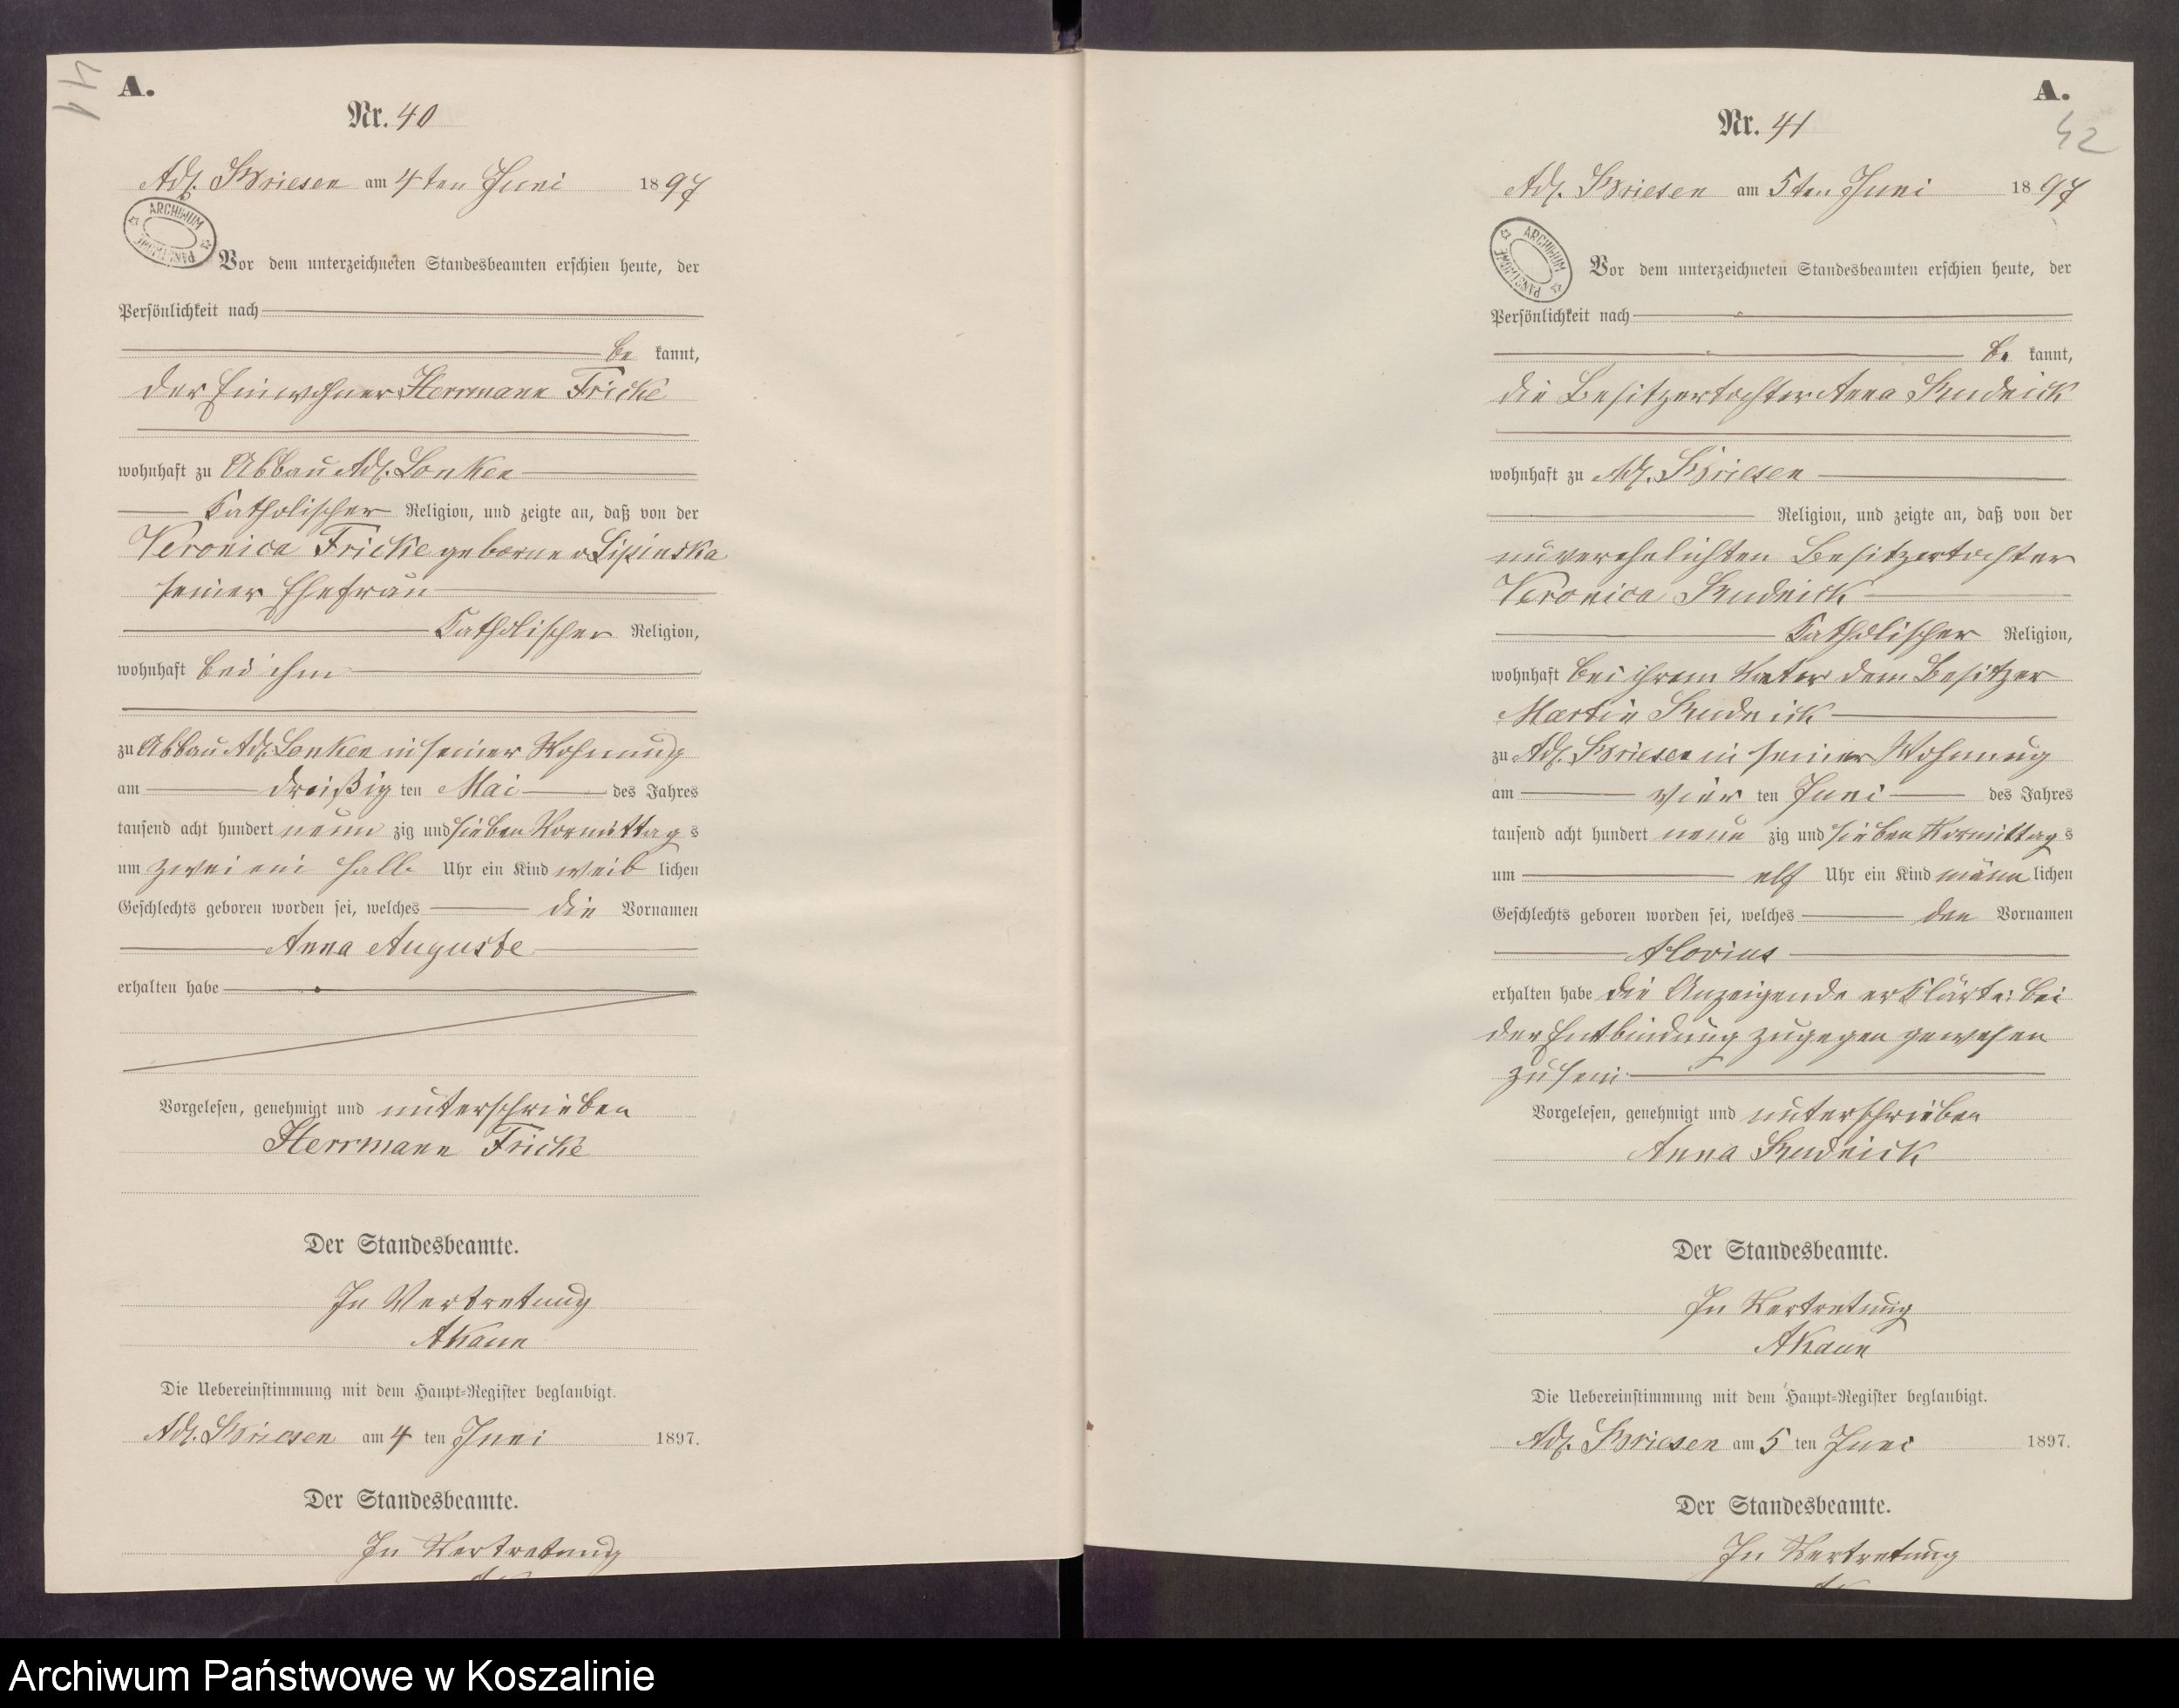 41
A.
Nr. 40
Adl. Briesen am 4 ten Juni 1897
ARCHIWUM PAŃSTWOWE
Vor dem unterzeichneten Standesbeamten erschien heute, der
Persönlichkeit nach
be kannt,
der Einwohner Herrmann Fricke
wohnhaft zu Abbau Adl. Lonken
Katholischer Religion, und zeigte an, daß von der
Veronica Fricke geborne v Lipinska
seiner Ehefrau
Katholischer Religion,
wohnhaft bei ihm
zu Abbau Adl. Lonken in seiner Wohnung
am dreißig ten Mai des Jahres
tausend acht hundert neun zig und sieben Vormittag s
um zwei ein halb Uhr ein Kind weib lichen
Geschlechts geboren worden sei, welches die Vornamen
Anna Auguste
erhalten habe
Vorgelesen, genehmigt und unterschrieben
Herrmann Fricke
Der Standesbeamte.
In Vertretung
Die Uebereinstimmung mit dem Haupt-Register beglaubigt.
Adl. Briesen am 4 ten Juni 1897.
Der Standesbeamte.
In Vertretung
A.
42
Nr. 41
Adl. Briesen am 5 ten Juni 1897
ARCHIWUM PAŃSTWOWE
Vor dem unterzeichneten Standesbeamten erschien heute, der
Persönlichkeit nach
be kannt,
die Besitzertochter Anna
wohnhaft zu Adl. Briesen
Religion, und zeigte an, daß von der
unverehelichten Besitzertochter
Veronica
Katholischer Religion,
wohnhaft bei ihrem Vater dem Besitzer
Martin
zu Adl. Briesen in seiner Wohnung
am vier ten Juni des Jahres
tausend acht hundert neun zig und sieben Vormittag s
um elf Uhr ein Kind männ lichen
Geschlechts geboren worden sei, welches den Vornamen
erhalten habe die Anzeigende erklärte: bei
der Entbindung zugegen gewesen
zu sein
Vorgelesen, genehmigt und unterschrieben
Anna
Der Standesbeamte.
In Vertretung
Die Uebereinstimmung mit dem Haupt-Register beglaubigt.
Adl. Briesen am 5 ten Juni 1897.
Der Standesbeamte.
In Vertretung
Archiwum Państwowe w Koszalinie